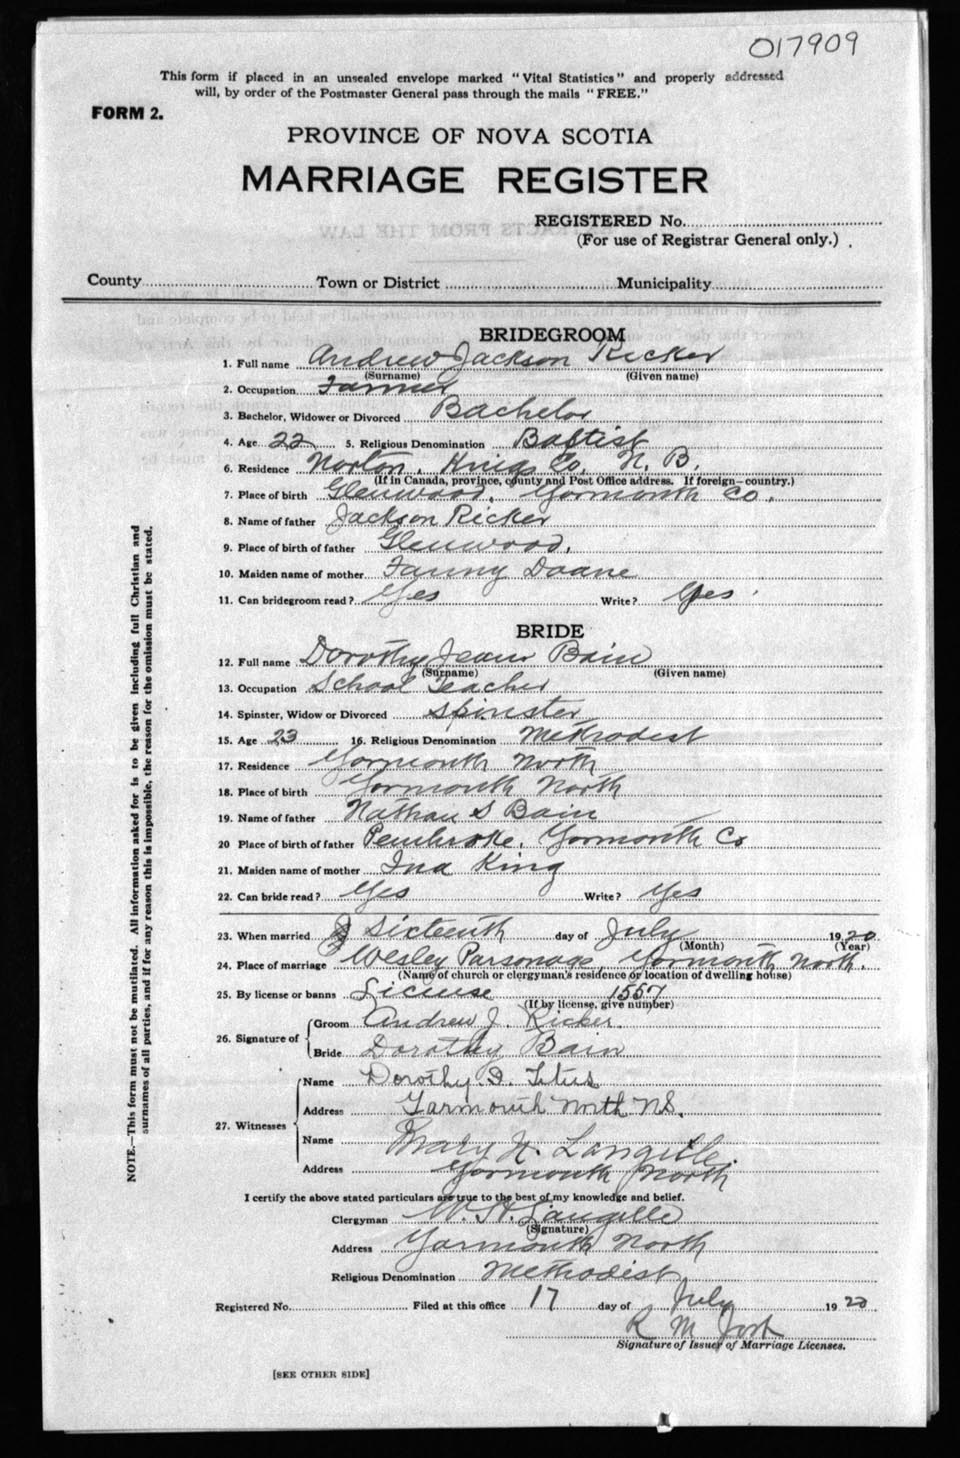 017909
This form if placed in an unsealed envelope marked "Vital Statistics" and properly addressed
will, by order of the Postmaster General pass through the mails "FREE."
FORM 2.
PROVINCE OF NOVA SCOTIA
MARRIAGE REGISTER
REGISTERED No.
(For use of Registrar General only.)
County Town or District Municipality
BRIDEGROOM
1. Full name Andrew Jackson Ricker
(Surname) (Given name)
2. Occupation Farmer
3. Bachelor, Widower or Divorced Bachelor
4. Age 22 5. Religious Denomination Baptist
6. Residence Norton, Kings Co. N. B.
(If in Canada, province, county and Post Office address. If foreign—country.)
7. Place of birth Glenwood, Yarmouth Co.
8. Name of father Jackson Ricker
9. Place of birth of father Glenwood.
10. Maiden name of mother Fanny Doane
11. Can bridegroom read? Yes Write? Yes
BRIDE
12. Full name Dorothy Jean Bain
(Surname) (Given name)
13. Occupation School Teacher
14. Spinster, Widow or Divorced Spinster
15. Age 23 16. Religious Denomination Methodist
17. Residence Yarmouth North
18. Place of birth Yarmouth North
19. Name of father Nathan S Bain
20 Place of birth of father Pembroke, Yarmouth Co
21. Maiden name of mother Ina King
22. Can bride read? Yes Write? Yes
23. When married Sixteenth day of July 1920
(Month) (Year)
24. Place of marriage Wesley Parsonage, Yarmouth North.
(Name of church or clergyman's residence or location of dwelling house)
25. By license or banns License 1557
(If by license, give number)
26. Signature of Groom Andrew J. Ricker.
Bride Dorothy Bain
27. Witnesses Name Dorothy I. Titus
Address Yarmouth North N.S.
Name Mary H. Langille.
Address Yarmouth North
I certify the above stated particulars are true to the best of my knowledge and belief.
Clergyman W. H. Langille
(Signature)
Address Yarmouth North
Religious Denomination Methodist
Registered No. Filed at this office 17 day of July 1920
R M Jost
Signature of Issuer of Marriage Licenses.
[SEE OTHER SIDE]
NOTE.—This form must not be mutilated. All information asked for is to be given including full Christian and
surnames of all parties, and if for any reason this is impossible, the reason for the omission must be stated.